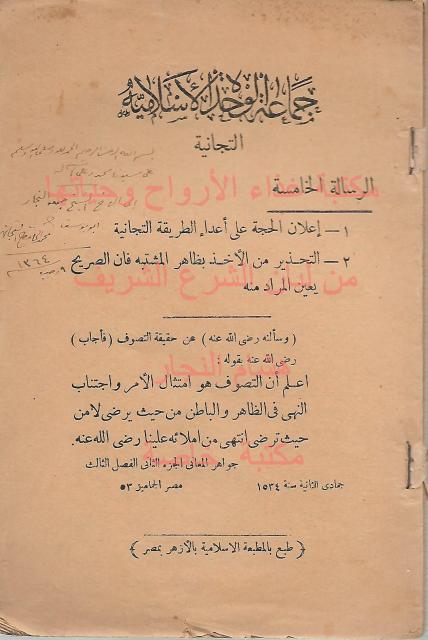 جماعة الوحدة الإسلامية
التجانية
الرسالة الخامسة
مكتبة غذاء الأرواح وحياتها
١ — إعلان الحجة على أعداء الطريقة التجانية
٢ — التحذير من الأخذ بظاهر المشتبه فان الصريح
يعين المراد منه
من لبان الشرع الشريف
١٣٦٤
( وسألته رضى الله عنه ) عن حقيقة التصوف ( فأجاب )
رضى الله عنه بقوله :
هشام النجار
اعلم أن التصوف هو امتثال الأمر واجتناب
النهى فى الظاهر والباطن من حيث يرضى لا من
حيث ترضى انتهى من املائه علينا رضى الله عنه.
مكتبة خاصة
جواهر المعانى الجزء الثانى الفصل الثالث
جمادى الثانية سنة ١٥٣٤ مصر الجماميز ٥٣
( طبع بالمطبعة الاسلامية بالأزهر بمصر )